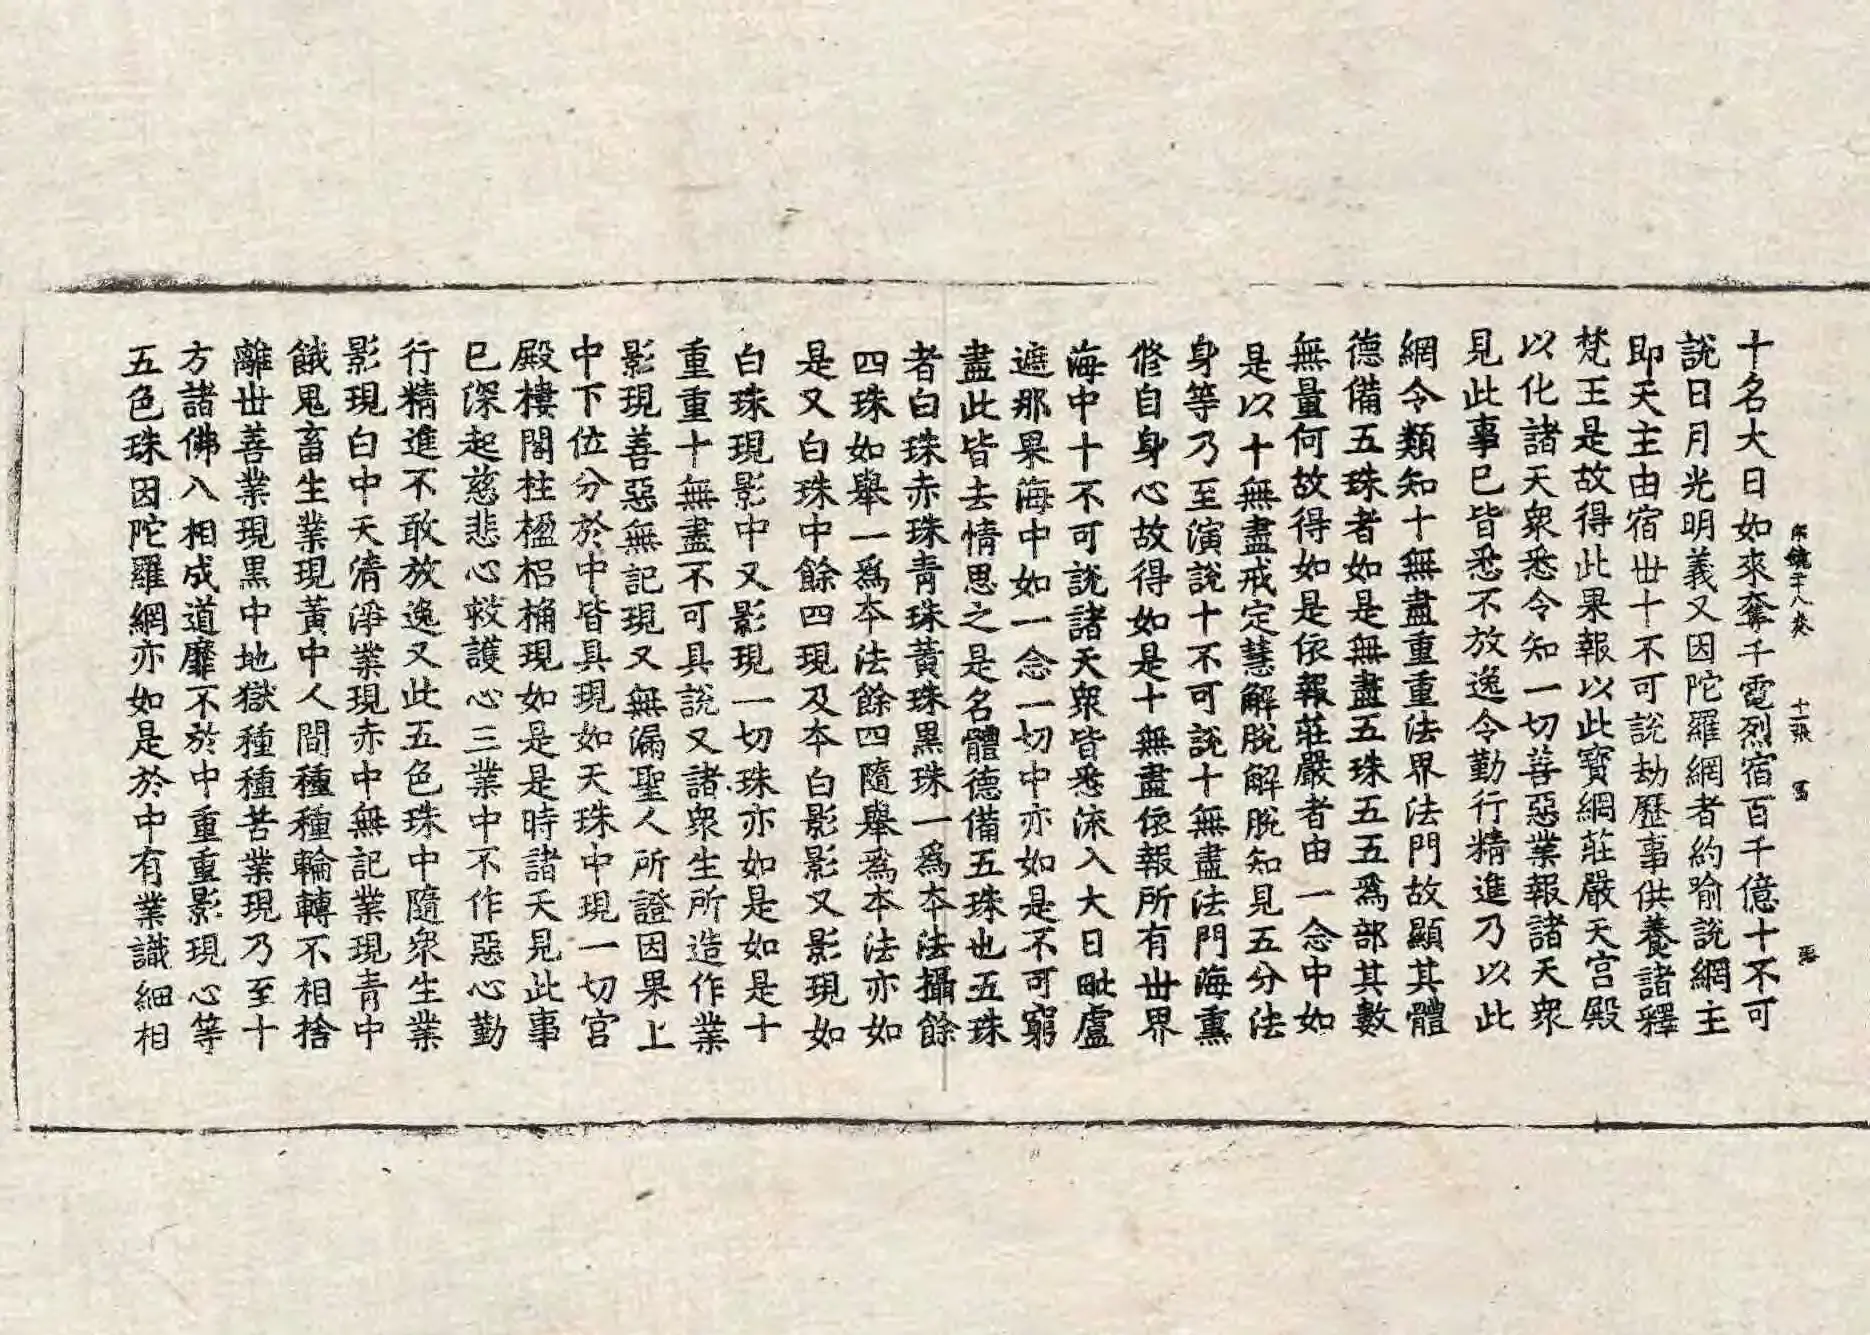 十名大日如來奪千電烈宿百千億十不可
宗鏡二十八卷 十一張 富
說日月光明義又因陀羅網者約喻說網主
即天主由宿世十不可說劫歷事供養諸釋
梵王是故得此果報以此寶網莊嚴天宮殿
以化諸天衆悉令知一切善惡業報諸天衆
見此事已皆悉不放逸令勤行精進乃以此
網令類知十無盡重重法界法門故顯其體
德備五珠者如是無盡五珠五五爲部其數
無量何故得如是依報莊嚴者由一念中如
是以十無盡戒定慧解脫解脫知見五分法
身等乃至演說十不可說十無盡法門海熏
修自身心故得如是十無盡依報所有世界
海中十不可說諸天衆皆悉流入大日毗盧
遮那果海中如一念一切中亦如是不可窮
盡此皆去情思之是名體德備五珠也五珠
者白珠赤珠青珠黃珠黑珠一爲本法攝餘
四珠如舉一爲本法餘四隨舉爲本法亦如
是又白珠中餘四現及本白影影又影現如
白珠現影中又影現一切珠亦如是如是十
重重十無盡不可具說又諸衆生所造作業
影現善惡無記現又無漏聖人所證因果上
中下位分於中皆具現如天珠中現一切宮
殿樓閣柱楹梠桷現如是是時諸天見此事
已深起慈悲心救護心三業中不作惡心勤
行精進不敢放逸又此五色珠中隨衆生業
影現白中天清淨業現赤中無記業現青中
餓鬼畜生業現黃中人間種種輪轉不相捨
離世善業現黑中地獄種種苦業現乃至十
方諸佛八相成道靡不於中重重影現心等
五色珠因陀羅網亦如是於中有業識細相